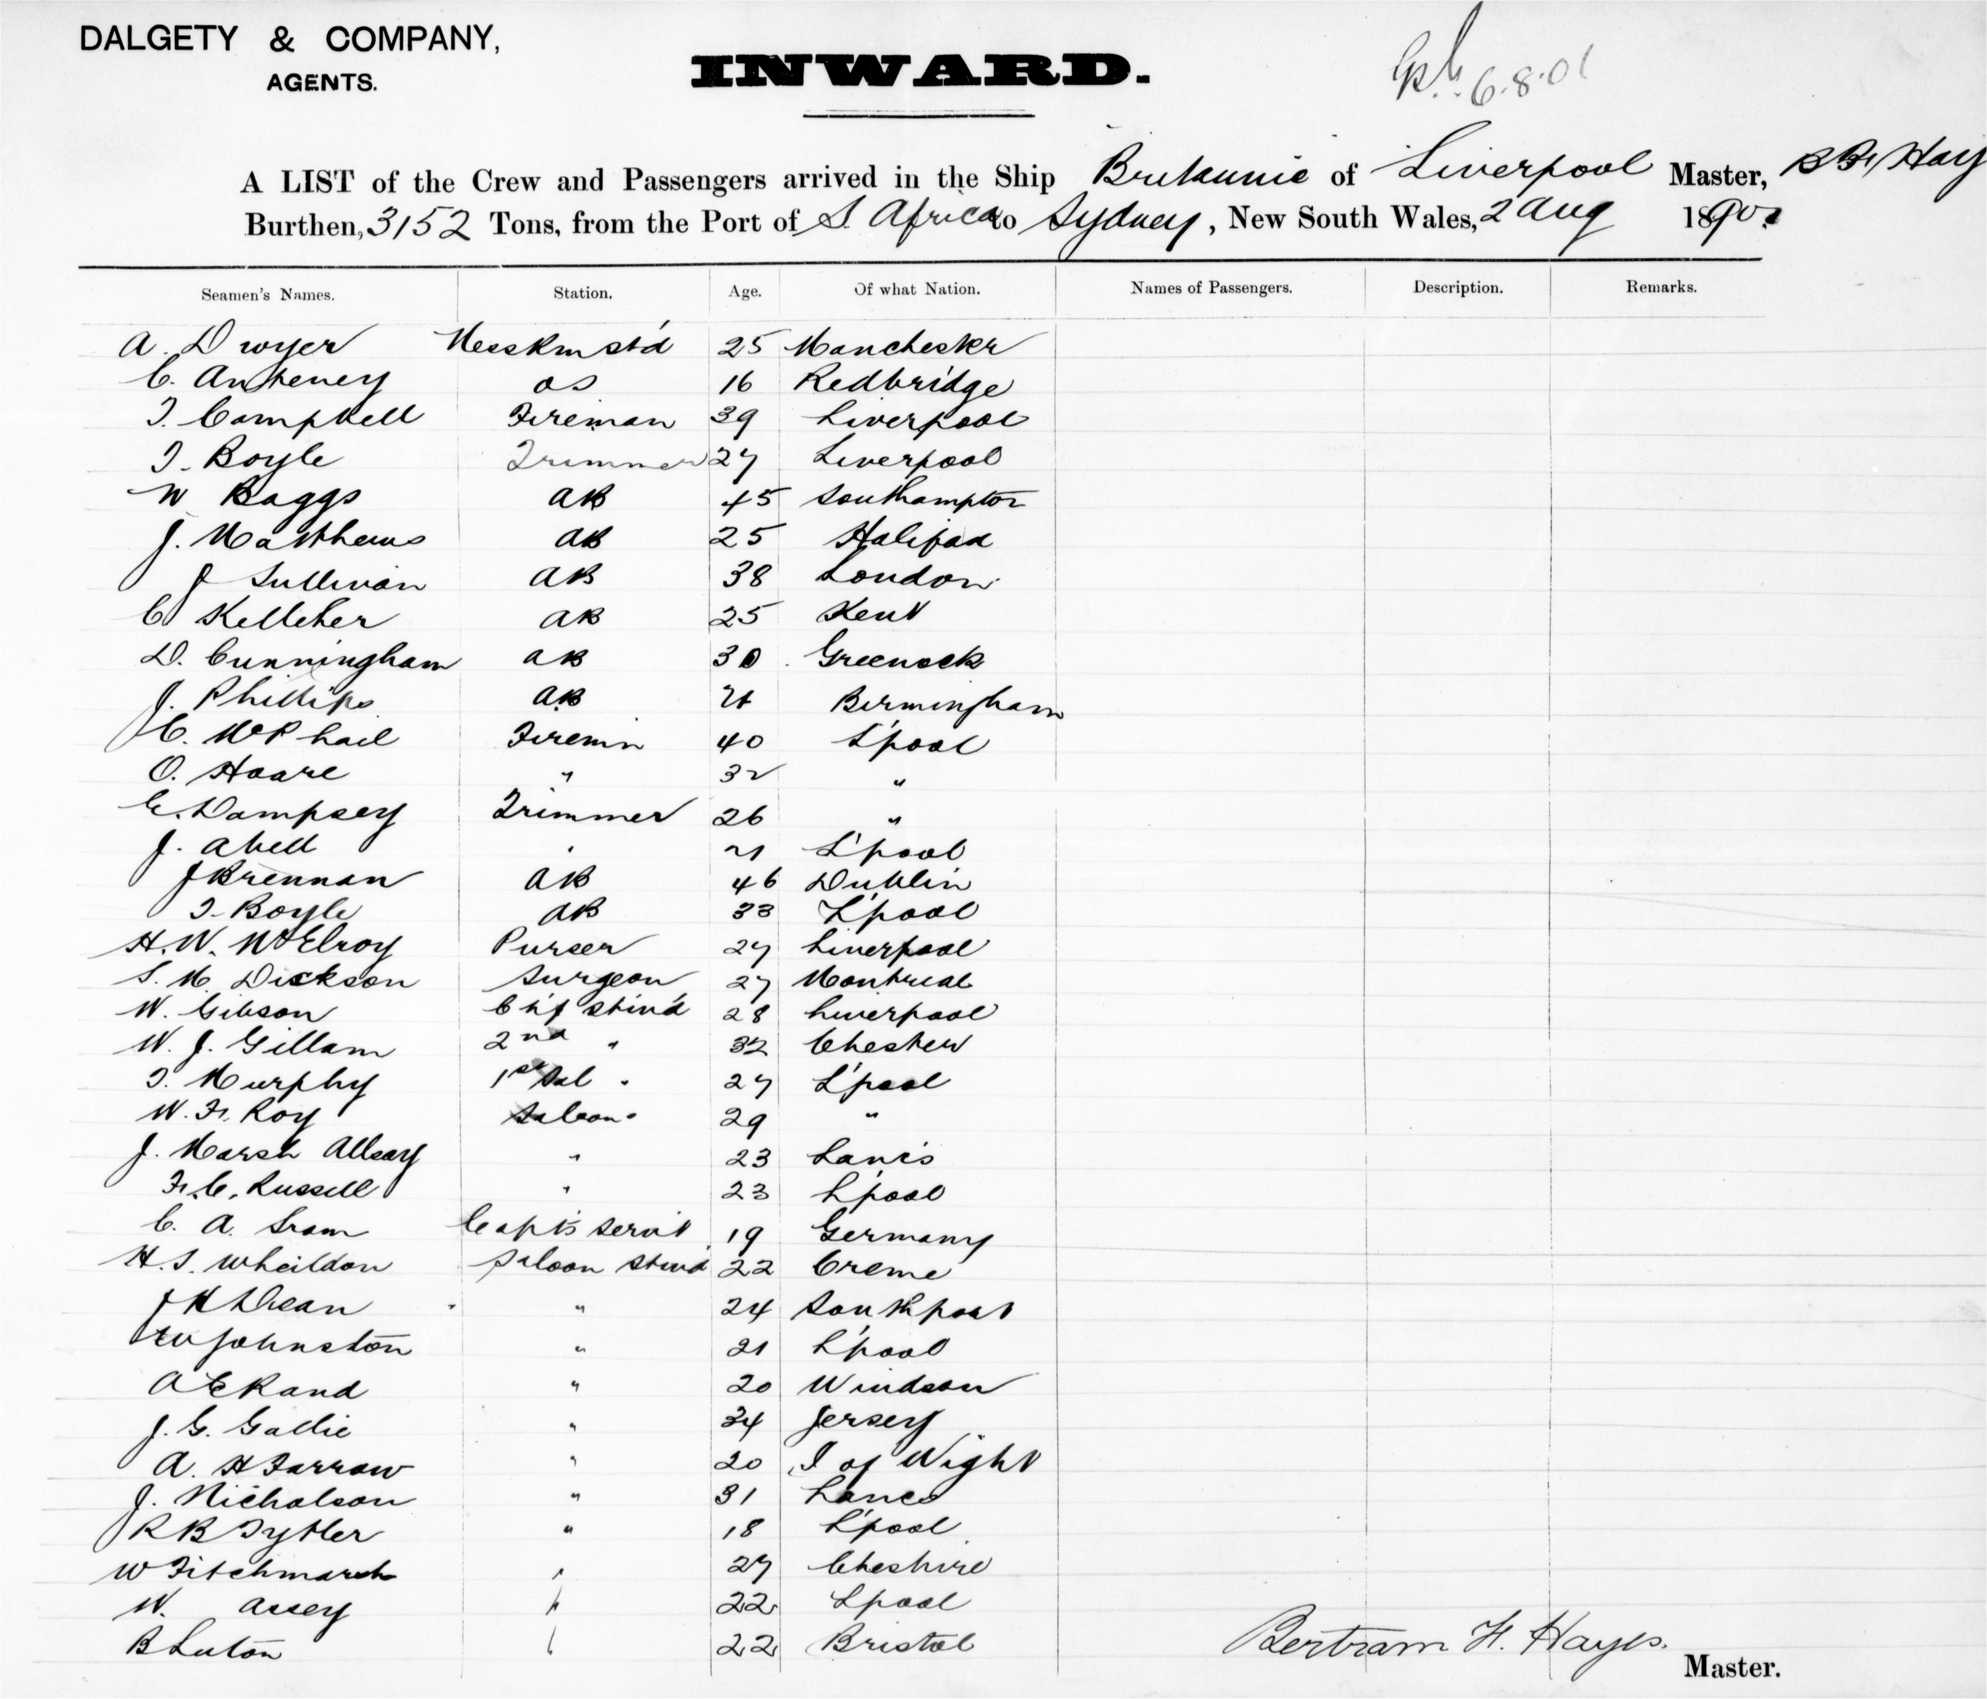 DALGETY & COMPANY,
AGENTS.
INWARD.
6.8.01
A LIST of the Crew and Passengers arrived in the Ship Britannic of Liverpool Master, B F Hay
Burthen, 3152 Tons, from the Port of S. Africa to Sydney, New South Wales, 2 Aug 1901
Seamen's Names. Station. Age. Of what Nation. Names of Passengers. Description. Remarks.
A. Dwyer Messrm std 25 Manchester
C. Antheney OS 16 Redbridge
T. Campbell Fireman 39 Liverpool
T. Boyle Trimmer 27 Liverpool
W Baggs AB 45 Southampton
J. Matthews AB 25 Halifax
J Sullivan AB 38 London
C Kelleher AB 25 Kent
D. Cunningham AB 30 Greenock
J. Phillips AB 21 Birmingham
C. McPhail Firemn 40 L'pool
O. Hoare " 32 "
E. Dampsey Trimmer 26 "
J. Abell " 21 L'pool
J Brennan AB 46 Dublin
T. Boyle AB 33 L'pool
H. W. McElroy Purser 27 Liverpool
S. M. Dickson Surgeon 27 Montreal
W. Gibson Ch'f Stew'd 28 Liverpool
W. J. Gillam 2nd " 32 Chester
T. Murphy 1st Sal " 27 L'pool
W. F. Roy Saloon " 29 "
J. Marsh Allsay " 23 Lancs
F. C. Russell " 23 L'pool
C. A. Sram Capt's Serv't 19 Germany
H. S. Wheildon Saloon Stew'd 22 Creme
J H Dean " 24 Southport
W Johnston " 21 L'pool
A E Rand " 20 Windsor
J. G. Gallie " 34 Jersey
A. H Farrow " 20 I of Wight
J. Nicholson " 31 Lancs
R B Tytler " 18 L'pool
W Fitchmarsh " 27 Cheshire
W. Assey " 22 L'pool
B Luton " 22 Bristol
Bertram F. Hayes.
Master.